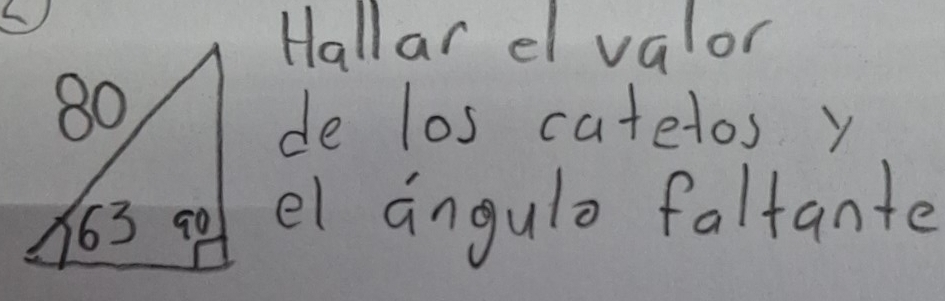 Hallar el valor
de los catetos y
el ángulo faltante
80
63 90